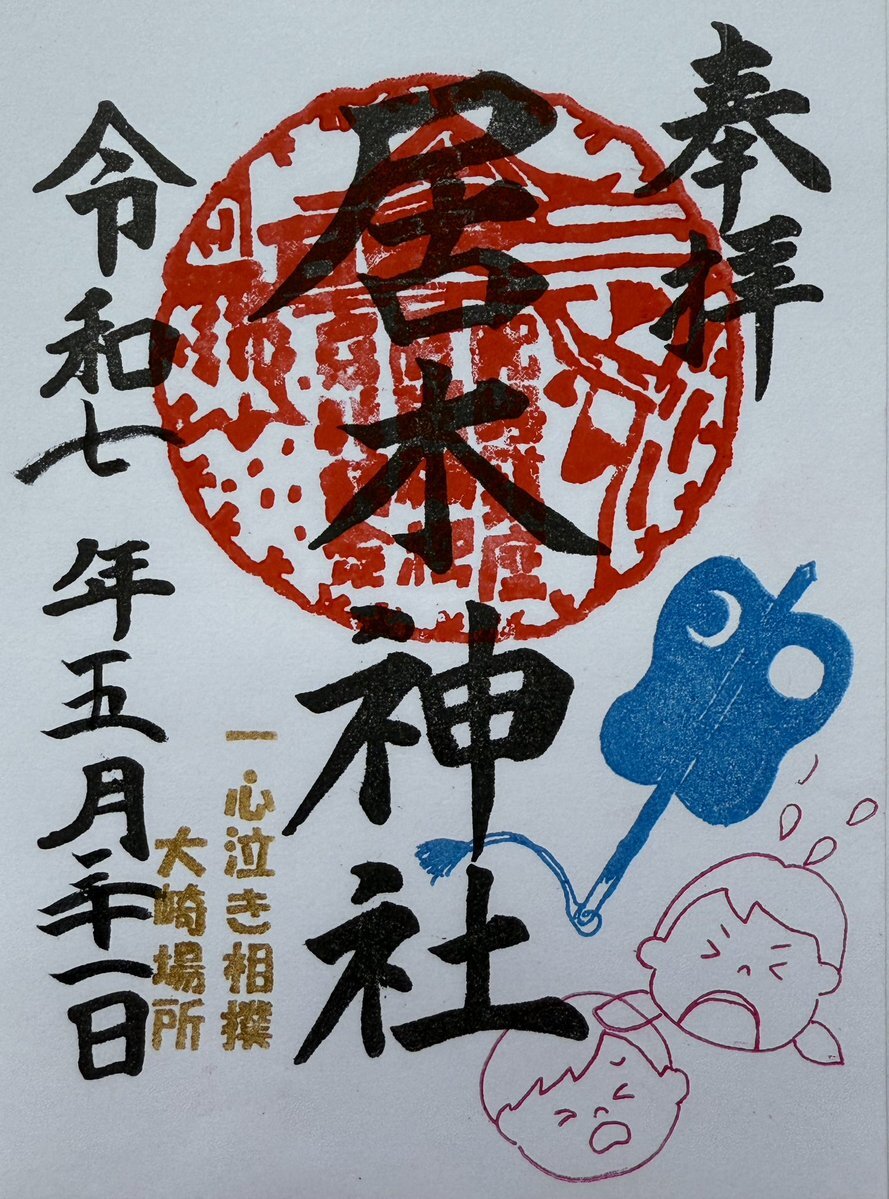 奉拝
居木神社
一心泣き相撲
大崎場所
令和七年五月二十一日